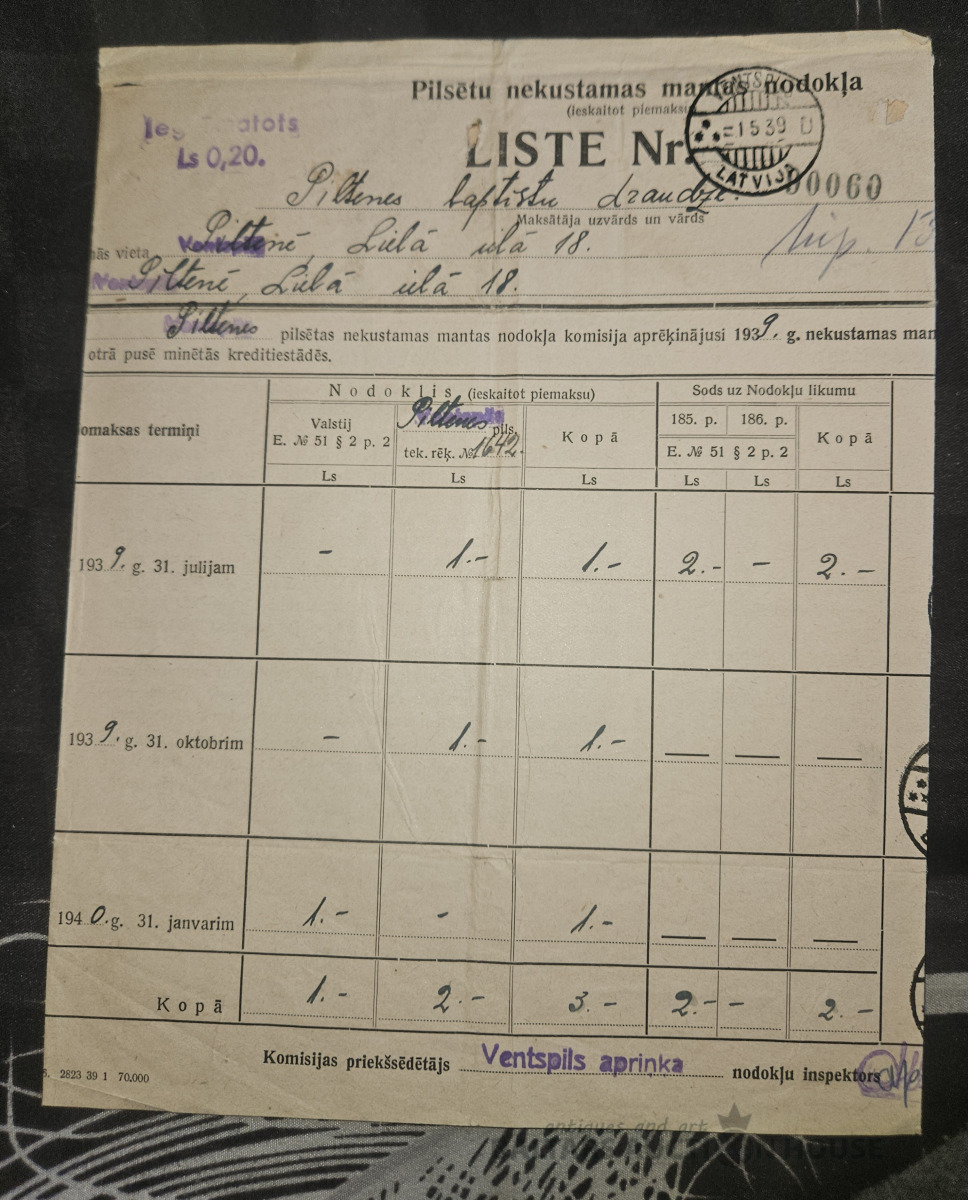 Pilsētu nekustamas mantas nodokļa
(ieskaitot piemaksu
LISTE Nr. 00060
VENTSPILS
15 39 D
LATVIJA
Ls 0,20.
Piltenes baptistu draudze.
Maksātāja uzvārds un vārds
vieta Piltenē, Lielā ielā 18.
Piltenē, Lielā ielā 18.
Piltenes pilsētas nekustamas mantas nodokļa komisija aprēķinājusi 1939. g. nekustamas man
otrā pusē minētās kreditiestādēs.
omaksas termiņi
Nodoklis (ieskaitot piemaksu)
Sods uz Nodokļu likumu
Valstij
E. № 51 § 2 p. 2
Piltenes pils.
tek. rēķ. № 1642.
Kopā
185. p. 186. p.
E. № 51 § 2 p. 2
Kopā
Ls Ls Ls Ls Ls Ls
1939. g. 31. julijam - 1.- 1.- 2.- - 2.-
1939. g. 31. oktobrim - 1.- 1.- — — —
1940. g. 31. janvarim 1.- - 1.- — — —
Kopā 1.- 2.- 3.- 2.- - 2.-
Komisijas priekšsēdētājs Ventspils apriņķa nodokļu inspektors
2823 39 1 70.000
antiques and art
HOUSE